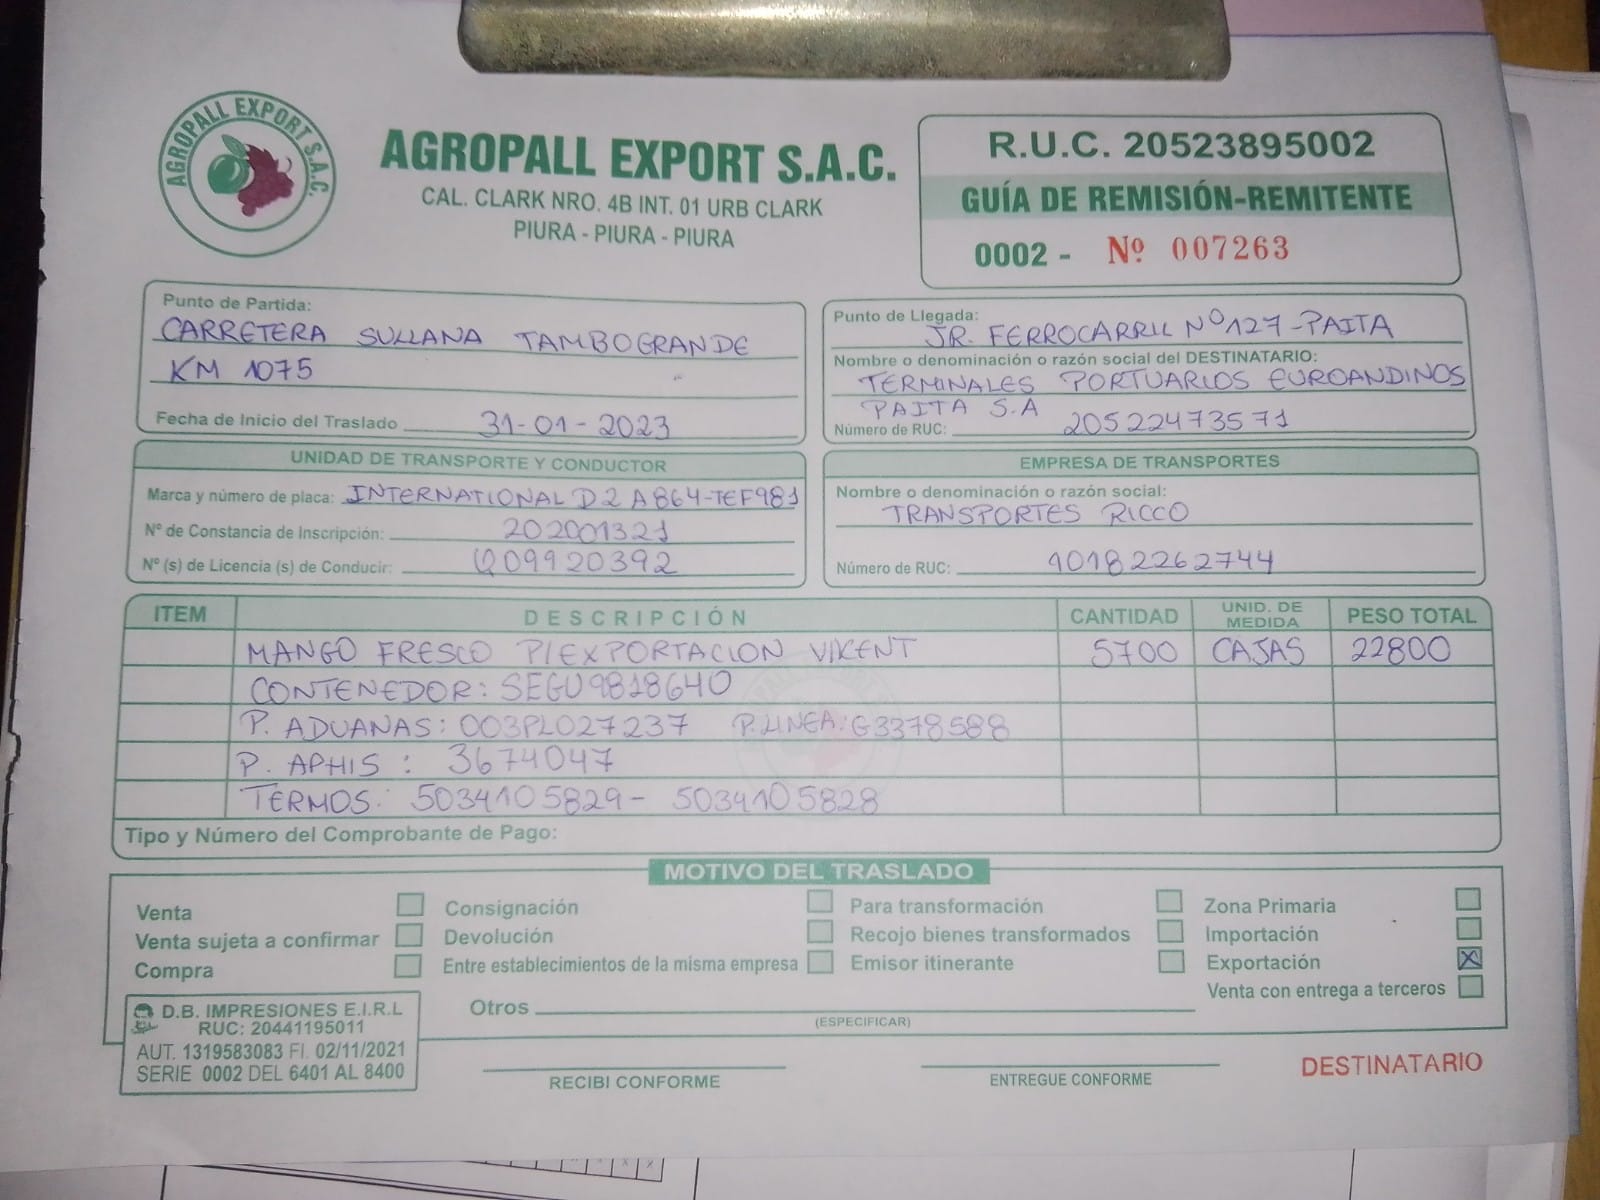 AGROPALL EXPORT S.A.C.
AGROPALL EXPORT S.A.C.
CAL. CLARK NRO. 4B INT. 01 URB CLARK
PIURA - PIURA - PIURA
R.U.C. 20523895002
GUÍA DE REMISIÓN-REMITENTE
0002 - Nº 007263
Punto de Partida:
CARRETERA SULLANA TAMBOGRANDE
KM 1075
Fecha de Inicio del Traslado 31-01-2023
Punto de Llegada:
JR. FERROCARRIL Nº127-PAITA
Nombre o denominación o razón social del DESTINATARIO:
TERMINALES PORTUARIOS EUROANDINOS
PAITA S.A
Número de RUC: 20522473571
UNIDAD DE TRANSPORTE Y CONDUCTOR
Marca y número de placa: INTERNATIONAL D2A864-TEF981
Nº de Constancia de Inscripción: 202001321
Nº (s) de Licencia (s) de Conducir: Q09920392
EMPRESA DE TRANSPORTES
Nombre o denominación o razón social:
TRANSPORTES RICCO
Número de RUC: 10182262744
ITEM DESCRIPCIÓN CANTIDAD UNID. DE MEDIDA PESO TOTAL
MANGO FRESCO P/EXPORTACION VIKENT 5700 CAJAS 22800
CONTENEDOR: SEGU9818640
P. ADUANAS: 003PL027237 P. LINEA: G3378588
P. APHIS : 3674047
TERMOS: 5034105829- 5034105828
Tipo y Número del Comprobante de Pago:
MOTIVO DEL TRASLADO
Venta Consignación Para transformación Zona Primaria
Venta sujeta a confirmar Devolución Recojo bienes transformados Importación
Compra Entre establecimientos de la misma empresa Emisor itinerante Exportación X
Venta con entrega a terceros
Otros
(ESPECIFICAR)
D.B. IMPRESIONES E.I.R.L
RUC: 20441195011
AUT. 1319583083 FI. 02/11/2021
SERIE 0002 DEL 6401 AL 8400
RECIBI CONFORME
ENTREGUE CONFORME
DESTINATARIO